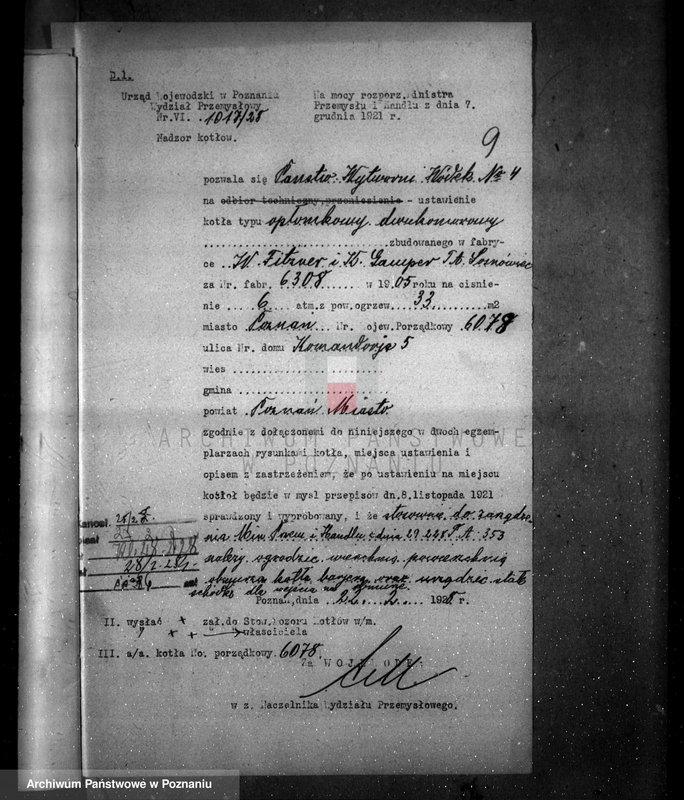 D.1.
Urząd Wojewodzki w Poznaniu
Wydział Przemysłowy
Nr.VI. 1017/28
Nadzor kotłow.
Na mocy rozporz. Ministra
Przemysłu i Handlu z dnia 7.
grudnia 1921 r.
9
pozwala się Państw. Wytworni Wódek No 4
na odbior techniczny, przeniesienie - ustawienie
kotła typu opłomkowy dwukomorowy
zbudowanego w fabry-
ce W. Fitzner i K. Gamper T.A. Sosnowiec
za Nr. fabr. 6308 w 1905 roku na ciśnie-
nie 6 atm. z pow.ogrzew. 33 m2
miasto Poznań Nr. wojew.Porządkowy 6078
ulica Nr. domu Komandorja 5
wies
gmina
powiat Poznań Miasto
zgodnie z dołączonemi do niniejszego w dwoch egzem-
plarzach rysunkami kotła, miejsca ustawienia i
opisem z zastrzeżeniem, że po ustawieniu na miejscu
kotłoł będzie w mysl przepisów dn.8.listopada 1921
sprawdzony i wyprobowany, i że stosown. do zarządze
nia Min. Przem. i Handlu z dnia 29.228
należy ogrodzić wierzchnią powierzchnię
kotła barjerą oraz urządzić stałe
schodki dla wejścia na
Poznań,dnia 22. 2. 1928 r.
28/2
II. wysłać + zał.do Stow.Dozoru Kotłów w/m.
" + + właściciela
III. a/a. kotła No. porządkowy. 6078.
Za WOJEWODĘ:
w z. Naczelnika Wydziału Przemysłowego.
ARCHIWUM PAŃSTWOWE
W POZNANIU
Archiwum Państwowe w Poznaniu